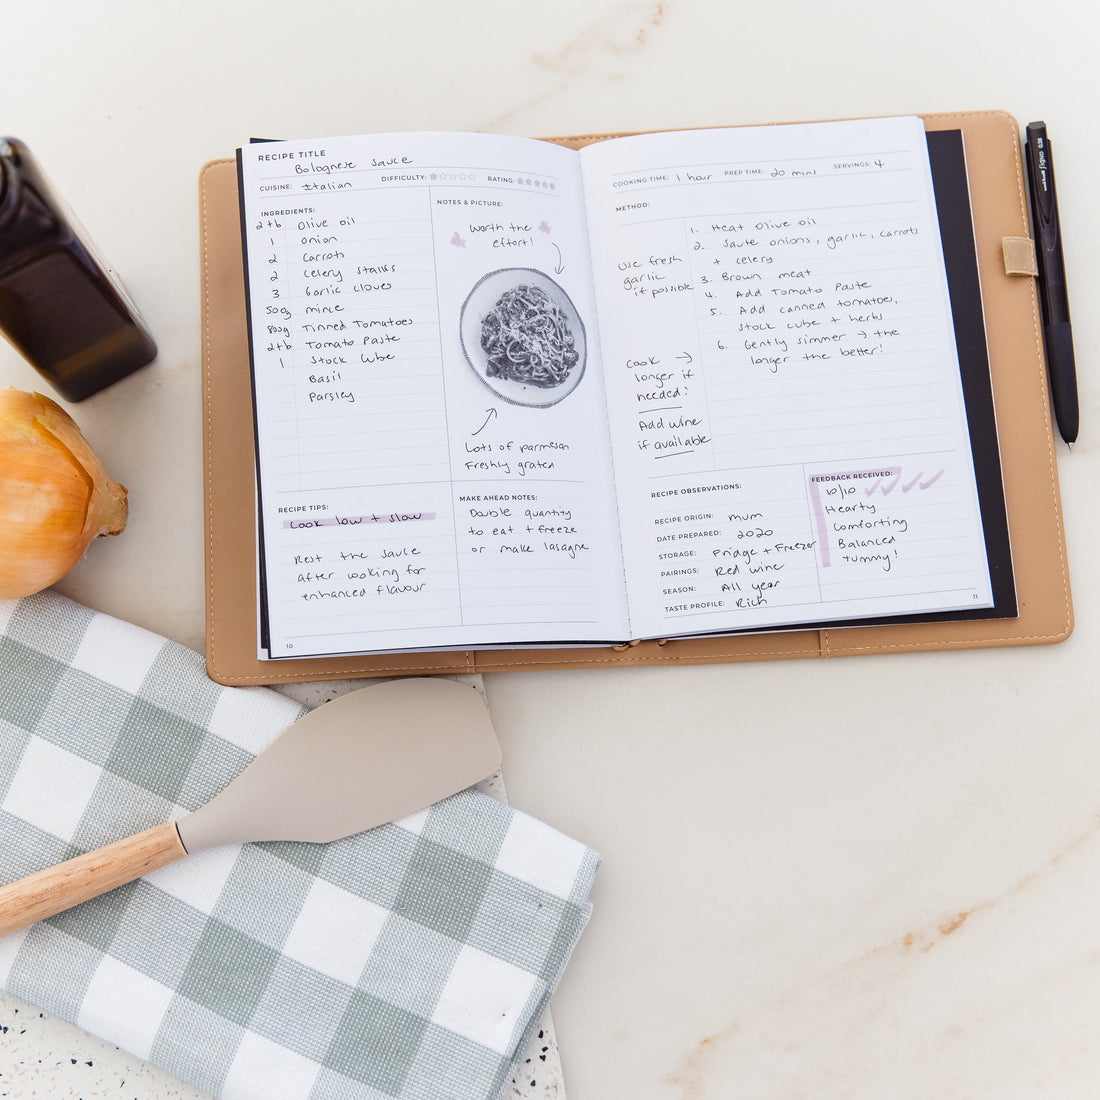 RECIPE TITLE
Bolognese Sauce
CUISINE: Italian
DIFFICULTY:
RATING:
INGREDIENTS:
2tb Olive oil
1 Onion
2 Carrots
2 Celery Stalks
3 Garlic Cloves
500g mince
800g Tinned Tomatoes
2tb Tomato Paste
1 Stock Cube
Basil
Parsley
NOTES & PICTURE:
Worth the
effort!
Lots of parmesan
Freshly grated
RECIPE TIPS:
Cook low + slow
Rest the sauce
after cooking for
enhanced flavour
MAKE AHEAD NOTES:
Double quantity
to eat + freeze
or make lasagne
10
COOKING TIME: 1 hour
PREP TIME: 20 mins
SERVINGS: 4
METHOD:
1. Heat Olive oil
2. Saute onions, garlic, carrots
+ celery
3. Brown meat
4. Add Tomato Paste
5. Add canned tomatoes,
stock cube + herbs
6. Gently simmer → the
longer the better!
Use fresh
garlic
if possible
Cook →
longer if
needed!
Add wine
if available
RECIPE OBSERVATIONS:
RECIPE ORIGIN: mum
DATE PREPARED: 2020
STORAGE: Fridge + Freezer
PAIRINGS: Red wine
SEASON: All year
TASTE PROFILE: Rich
FEEDBACK RECEIVED:
10/10
Hearty
Comforting
Balanced
Yummy!
11
uni-ball Signo 0.38